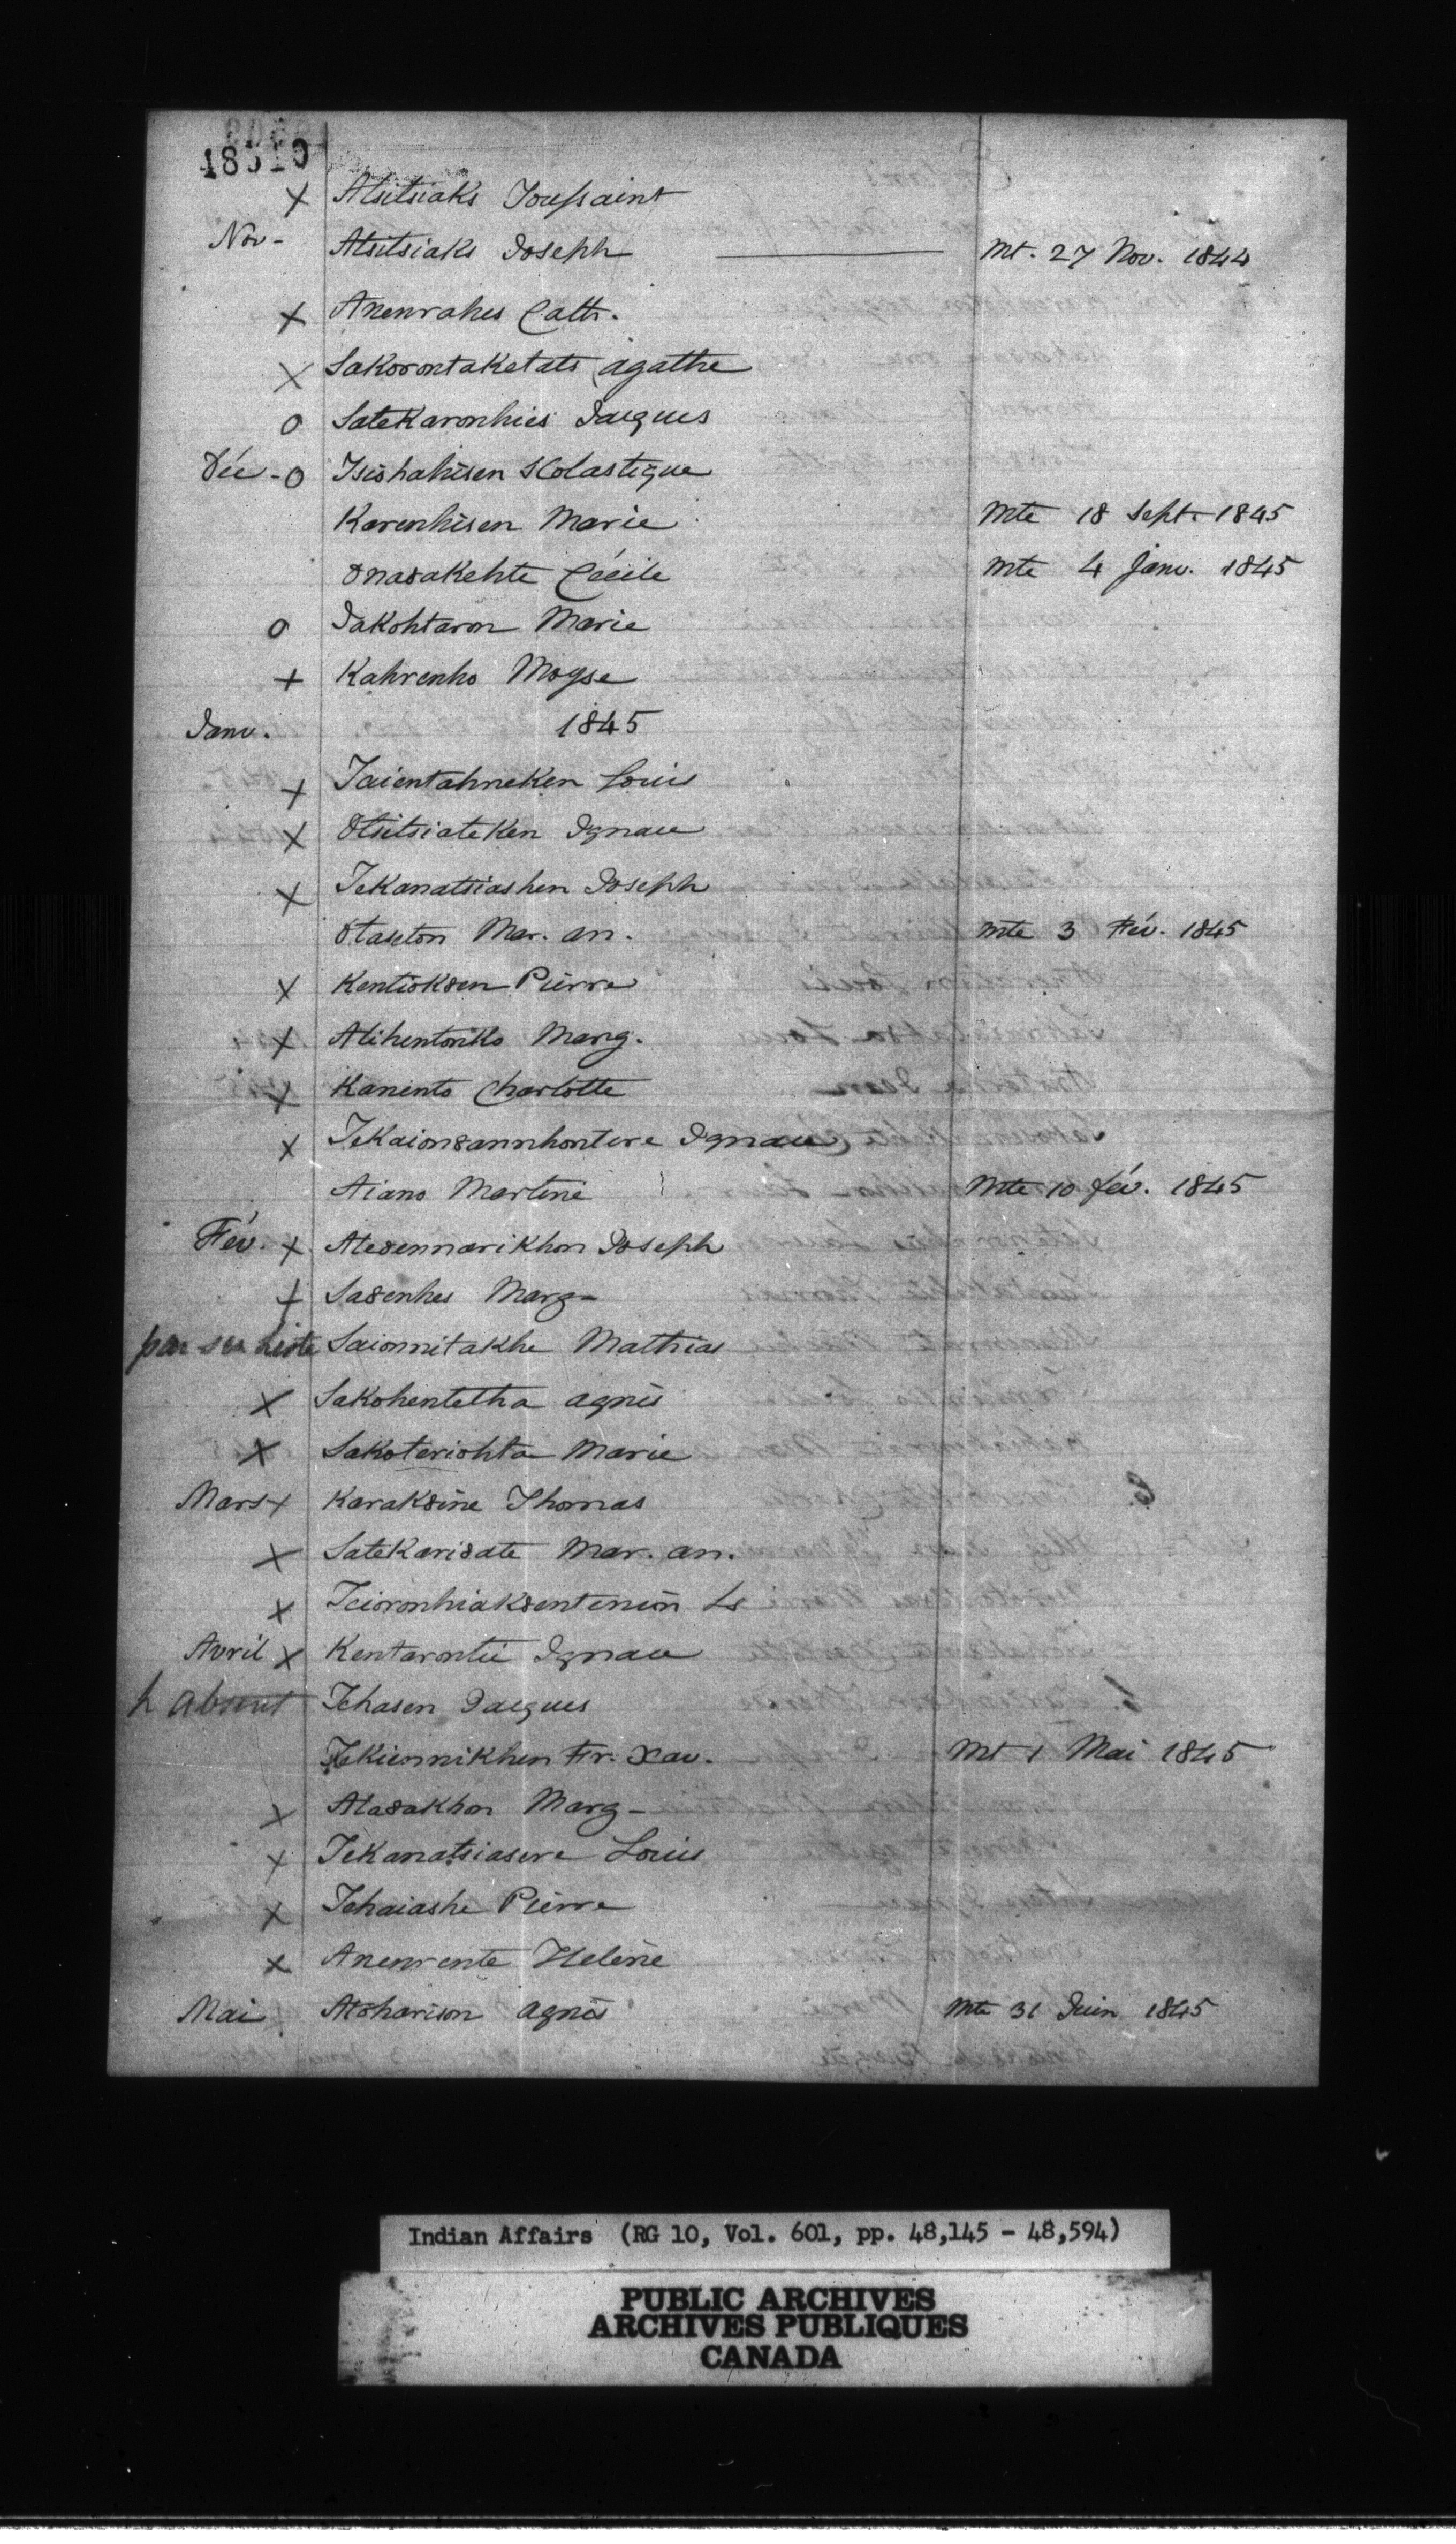 × Atsitsiaks Toussaint
Nov- Atsitsiaks Joseph — Mt. 27 Nov. 1844
× Anenrahes Cath.
× Sakorontaketats agathe
o Satekaronhies Jacques
Déc - o Tsiohahisen Scolastique
Karenhisen Marie mte 18 Sept. 1845
Onasakehte Cécile mte 4 Janv. 1845
o Iakohtaron Marie
+ Kahrenho Moyse
Janv. 1845
+ Taientahneken Louis
× Otsitsiateken Ignace
× Tekanatsiashen Joseph
Otaseton Mar. an. mte 3 Fév. 1845
× Kentiok8en Pierre
× Atihentonko Marg.
× Kanento Charlotte
× Tekaion8annhontere Ignace
Aiano Martine Mte 10 fév. 1845
Fév. × Ate8ennarikhon Joseph
+ Sa8enhes Marg-
par su liste Saionnitakhe Mathias
× Sakohentetha agnès
× Sakoteriohta Marie
Mars + Karak8ine Thomas
× Satekari8ate Mar. an.
× Teioronhiak8entenion Ls
Avril × Kentarontie Ignace
absent Tehasen Jacques
Tekiennikhen Fr. Xav. Mt 1 Mai 1845
× Ata8akhon Marg-
× Tekanatsiasere Louis
× Tehaiashe Pierre
× Anenrente Helène
Mai Atoharison agnès mte 31 Juin 1845
Indian Affairs (RG 10, Vol. 601, pp. 48,145 - 48,594)
PUBLIC ARCHIVES
ARCHIVES PUBLIQUES
CANADA